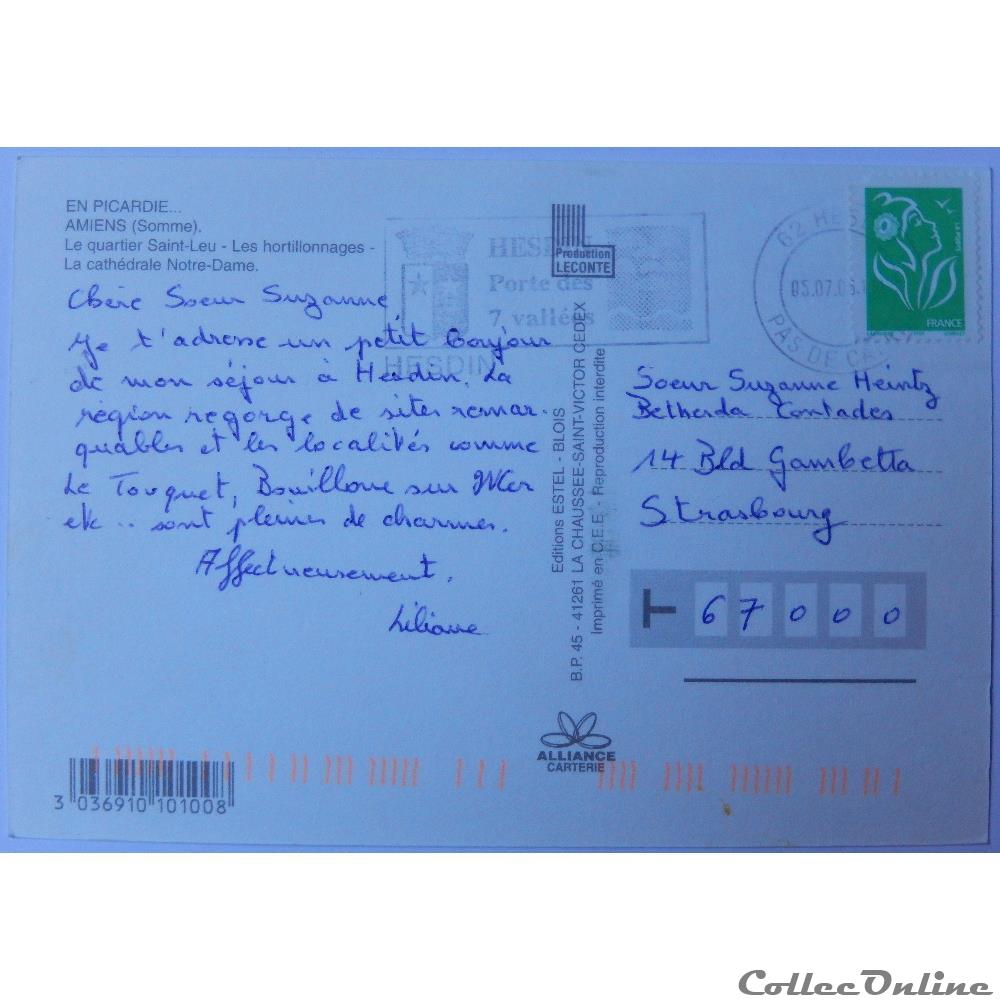 EN PICARDIE...
AMIENS (Somme).
Le quartier Saint-Leu - Les hortillonnages -
La cathédrale Notre-Dame.
Chère Soeur Suzanne
Je t'adresse un petit bonjour
de mon séjour à Hesdin. La
région regorge de sites remar-
quables et les localités comme
Le Touquet, Bouillone sur Mer
etc.. sont pleines de charmes.
Affectueusement.
Liliane
HESDIN
Porte des
7 vallées
HESDIN
Production
LECONTE
Editions ESTEL - BLOIS
B.P. 45 - 41261 LA CHAUSSEE-SAINT-VICTOR CEDEX
Imprimé en C.E.E. - Reproduction interdite
ALLIANCE
CARTERIE
62 HES
05.07.06
PAS DE CA
LA POSTE
FRANCE
Soeur Suzanne Heintz
Bethesda Contades
14 Bld Gambetta
Strasbourg
67000
3 036910 101008
CollecOnline